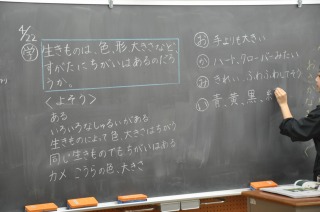 4/22
生きものは、色、形、大きさなど、
すがたにちがいはあるのだろ
うか。
<よそう>
ある
いろいろなしゅるいがある
生きものによって色、大きさはちがう
同じ生きものでもちがいはある
カメ こうらの色、大きさ
お 手よりも大きい
か ハート、クローバーみたい
み きれい、ふわふわしてそう
に 青、黄、黒、